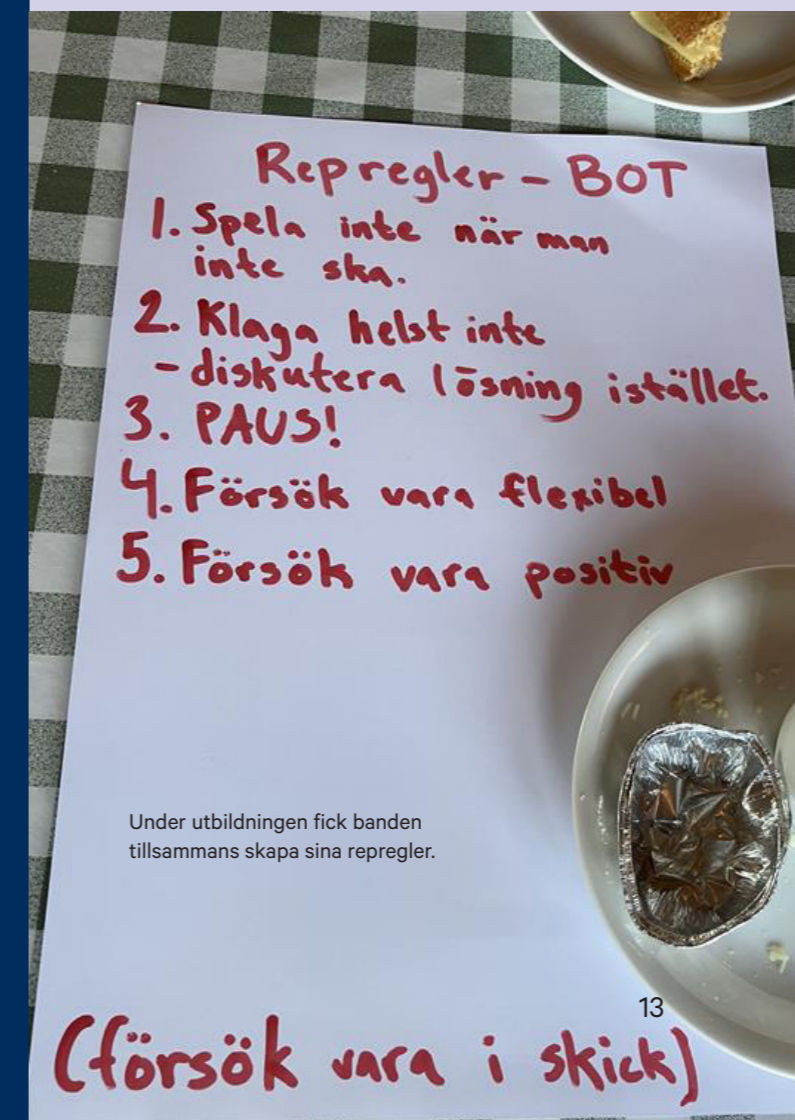 Rep regler - BOT
1. Spela inte när man
inte ska.
2. Klaga helst inte
- diskutera lösning istället.
3. PAUS!
4. Försök vara flexibel
5. Försök vara positiv
Under utbildningen fick banden
tillsammans skapa sina repregler.
13
(försök vara i skick)